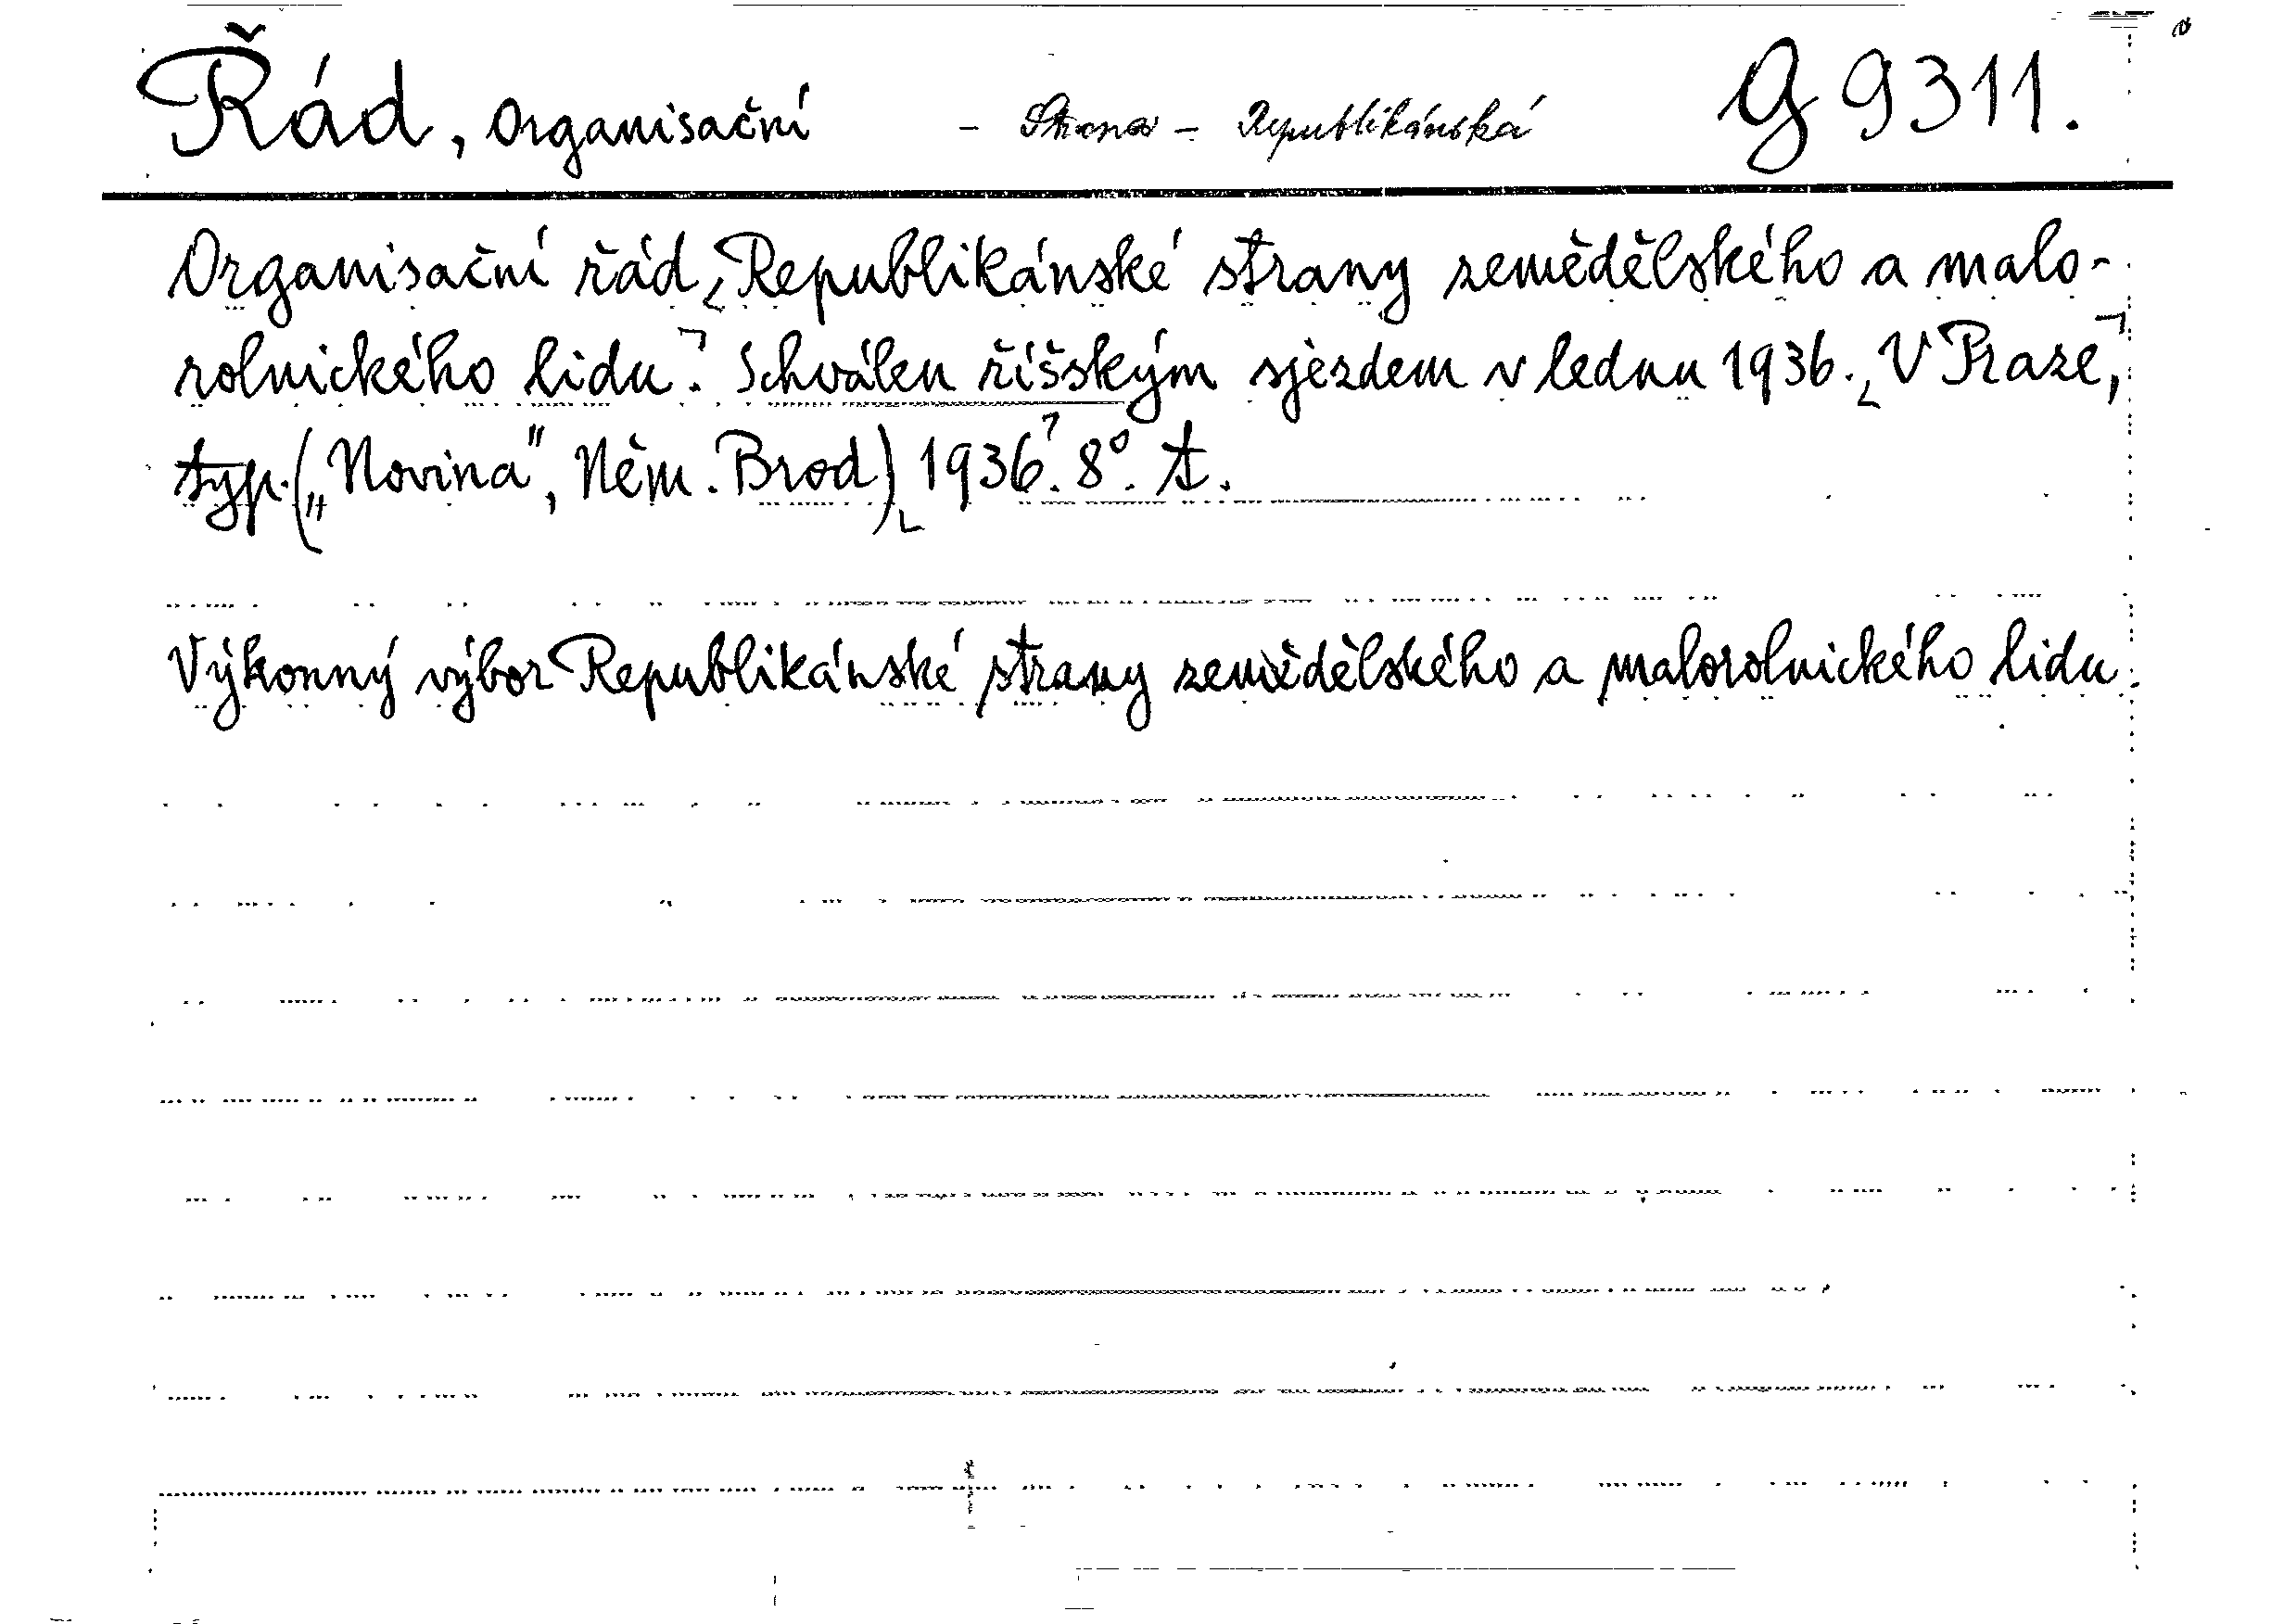 Řád, organisační - Strana - Republikánská G 9311.
Organisační řád ⌞Republikánské strany zemědělského a malo-
rolnického lidu⌝. Schválen říšským sjezdem v lednu 1936. ⌞V Praze,⌝
typ. („Novina", Něm. Brod) ⌞1936⌝. 8°. A.
Výkonný výbor Republikánské strany zemědělského a malorolnického lidu.